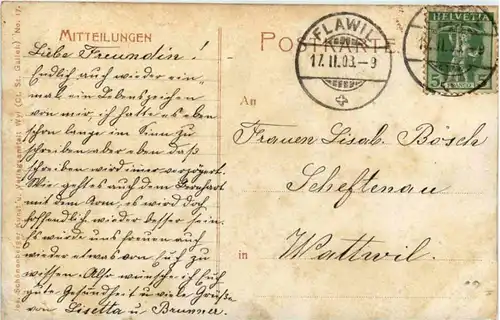 MITTEILUNGEN
Liebe Freundin!
Endlich auch wieder ein-
mal ein Lebenszeichen
von mir, ich hatte es eben
schon lange im Sinn zu
schreiben aber eben daß
schreiben wird immer verzögert.
Wie geht es auch dem
mit dem Arm, es wird doch
hoffentlich wieder besser sein.
Es würde uns freuen auch
wieder etwas von Euch zu
wissen. Also wünsche ich Euch
gute Gesundheit u viele Grüße
von Lisetta u Brunner.
POSTKARTE
FLAWIL
17.II.08.-9
HELVETIA
5
5
An
Frauen Lisab. Bösch
Scheftenau
in
Wattwil.